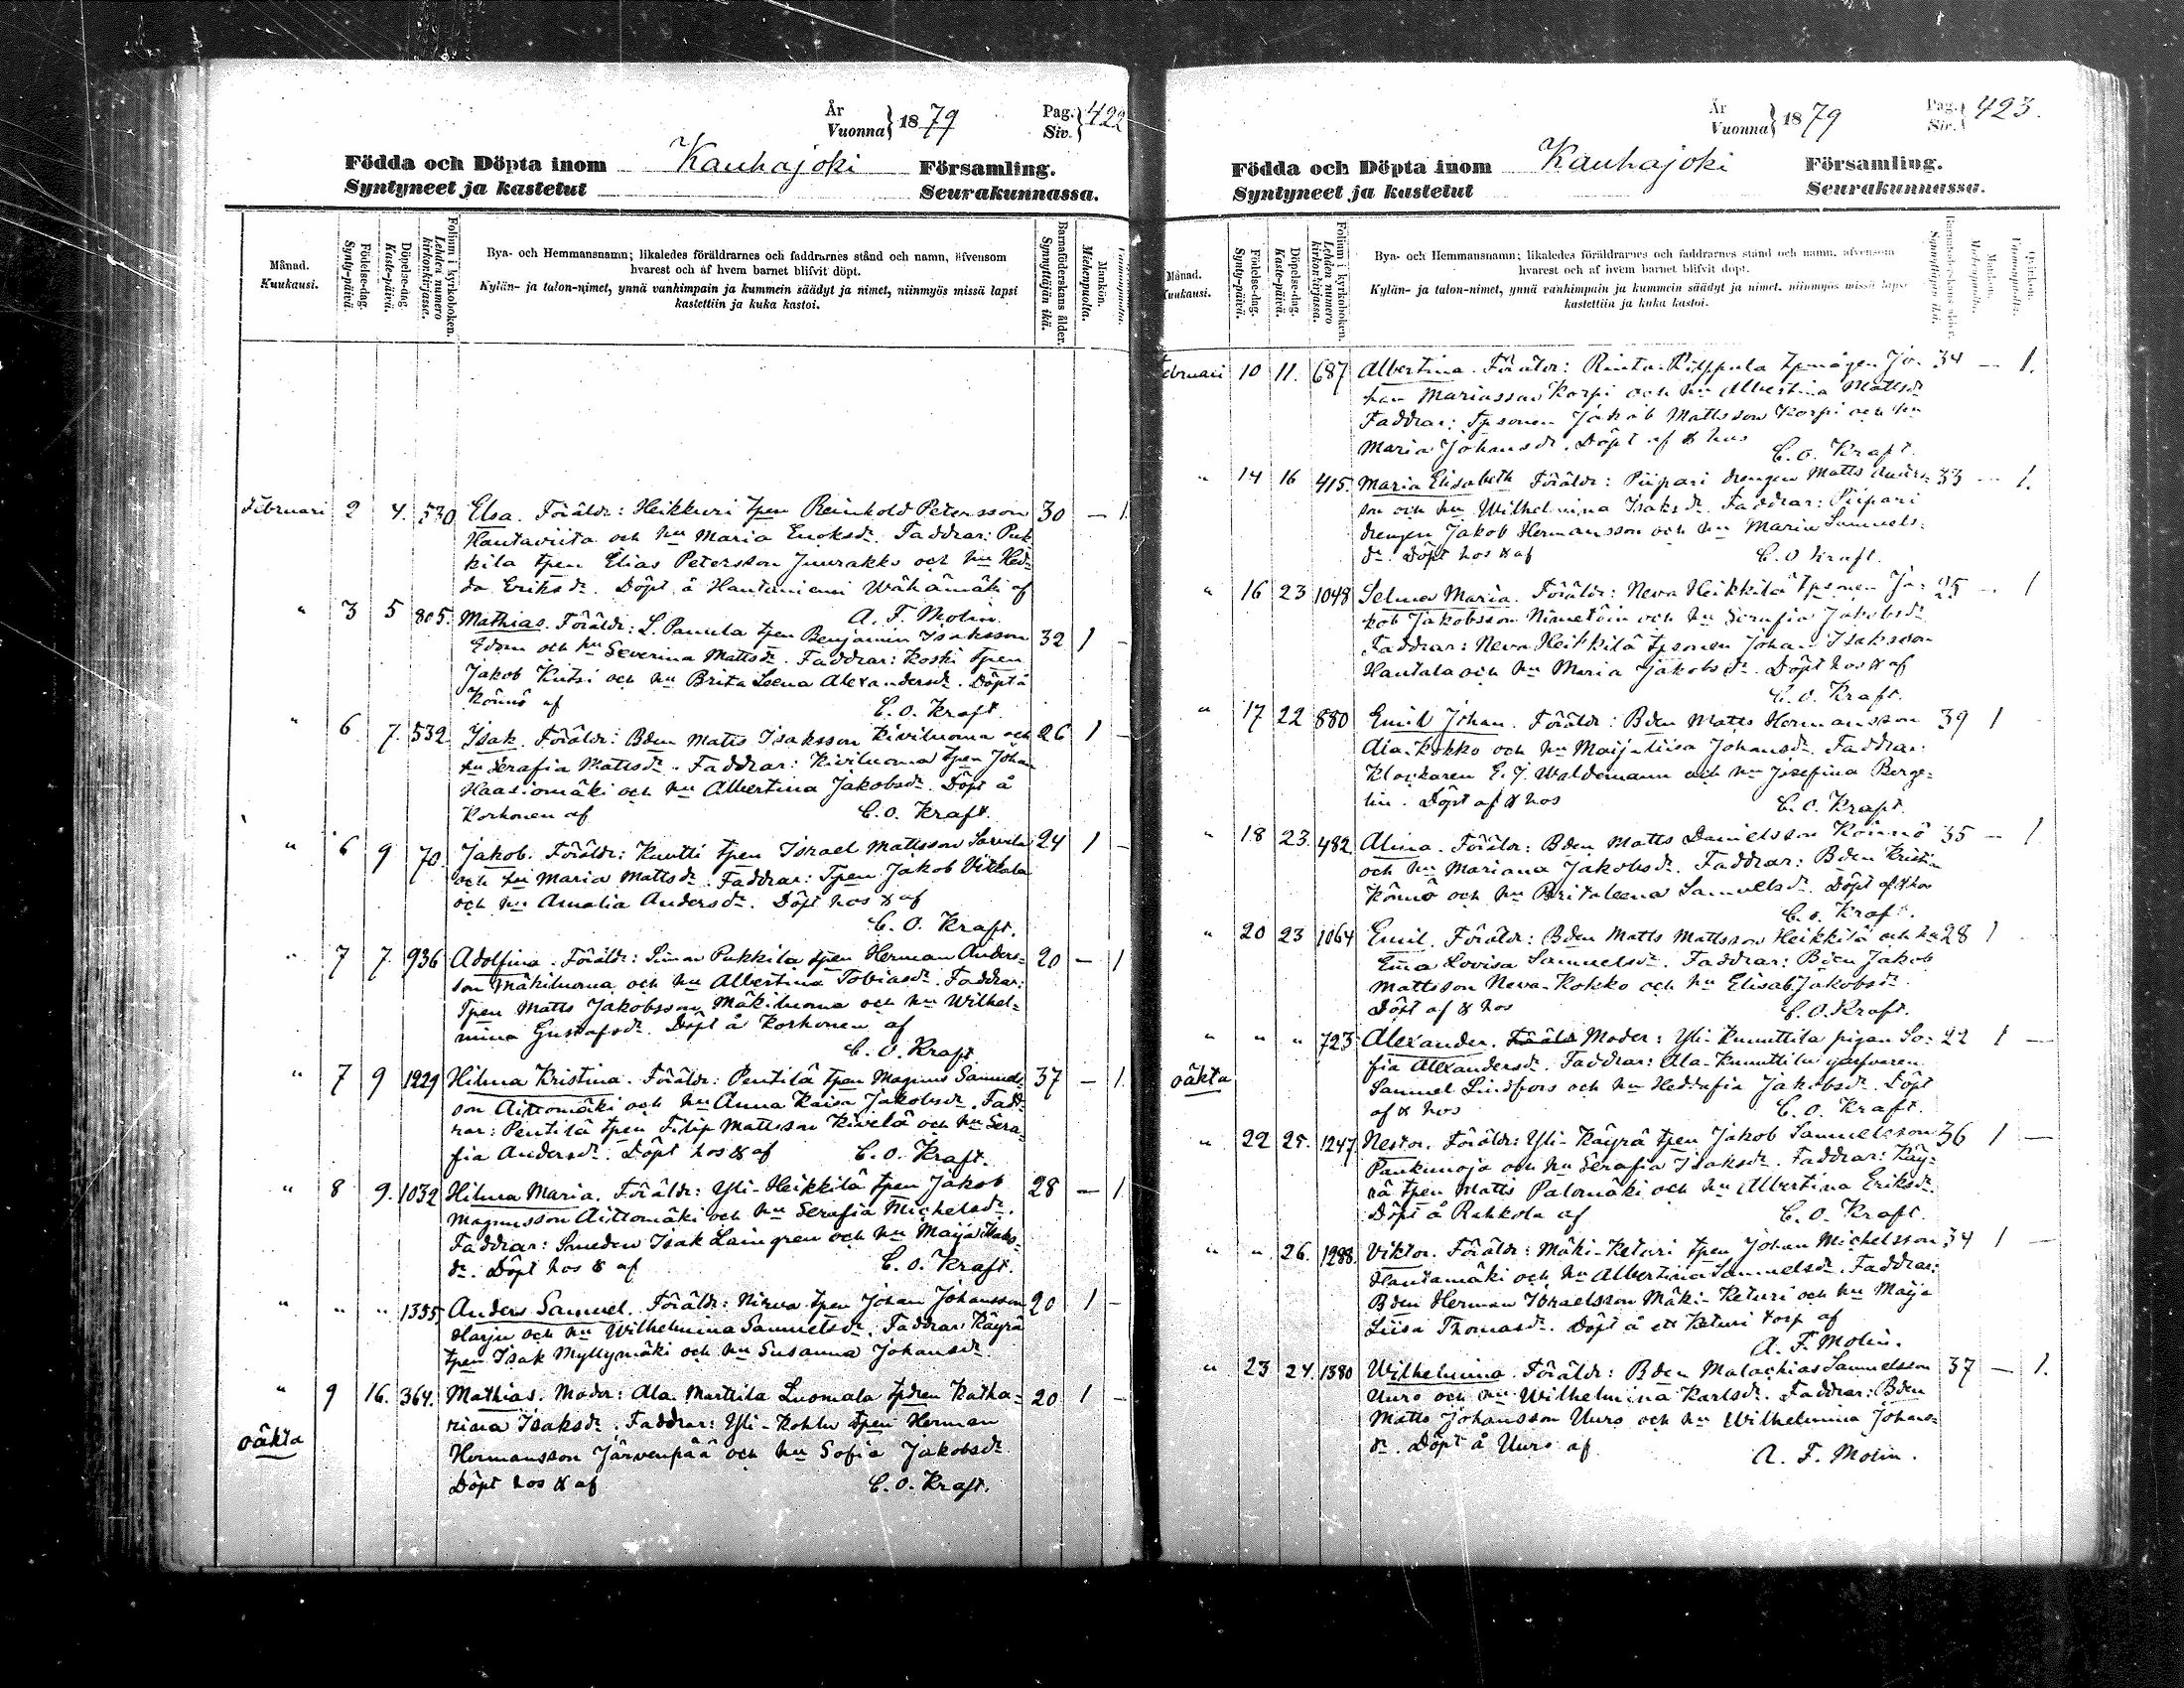 År
Vuonna } 1879
Pag.
Siv. } 422
Födda och Döpta inom Kauhajoki Församling.
Syntyneet ja kastetut Seurakunnassa.
Månad.
Kuukausi.
Födelse-dag.
Synty-päivä.
Döpelse-dag.
Kaste-päivä.
Folium i kyrkoboken.
Lehden numero kirkonkirjassa.
Bya- och Hemmansnamn; likaledes föräldrarnes och faddrarnes stånd och namn, äfvensom
hvarest och af hvem barnet blifvit döpt.
Kylän- ja talon-nimet, ynnä vanhimpain ja kummein säädyt ja nimet, niinmyös missä lapsi
kastettiin ja kuka kastoi.
Barnaföderskans ålder.
Synnyttäjän ikä.
Mankön.
Miehenpuolta.
Februari 2 4. 530 Elsa. Föräldr: Heikkuri tpen Reinhold Petersson 30 — 1.
Hautaviita och hu Maria Enoksdr. Faddrar: Puk-
kila tpen Elias Petersson Juurakko och hu Hed-
da Eriksdr. Döpt å Hautaniemi Wähämäki af
A. F. Molin.
" 3 5 805. Mathias. Föräldr: L. Panula tpen Benjamin Isaksson 32 1 —
Edom och hu Severina Mattsdr. Faddrar: Koski tpen
Jakob Kutsi och hu Brita Leena Alexandersdr. Döpt å
Könnö af C. O. Kraft.
" 6 7. 532. Isak. Föräldr: Bden Matts Isaksson Kiviluoma och 26 1 —
hu Serafia Mattsdr. Faddrar: Kiviluoma tpen Johan
Haasiomäki och hu Albertina Jakobsdr. Döpt å
Korhonen af C. O. Kraft.
" 6 9 70 Jakob. Föräldr: Knutti tpen Israel Mattsson Sarvela 24 1 —
och hu Maria Mattsdr. Faddrar: Tpen Jakob Viitala
och hu Amalia Andersdr. Döpt hos & af
C. O. Kraft.
" 7 7. 936 Adolfina. Föräldr: Simon Pukkila tpen Herman Anders- 20 — 1
son Mäkiluoma och hu Albertina Tobiasdr. Faddrar:
Tpen Matts Jakobsson Mäkiluoma och hu Wilhel-
mina Gustafsdr. Döpt å Korhonen af
C. O. Kraft
" 7 9 1229 Hilma Kristina. Föräldr: Pentilä tpen Magnus Samuels- 37 — 1.
son Aittomäki och hu Anna Kaisa Jakobsdr. Fadd-
rar: Pentilä tpen Filip Mattsson Kivelä och hu Sera-
fia Andersdr. Döpt hos & af C. O. Kraft.
" 8 9. 1032 Hilma Maria. Föräldr: Yli-Heikkilä tpen Jakob 28 — 1.
Magnusson Aittomäki och hu Serafia Michelsdr.
Faddrar: Smeden Isak Laingren och hu Maija Isaks-
dr. Döpt hos & af C. O. Kraft.
" " " 1355 Anders Samuel. Föräldr: Nirva tpen Johan Johansson 20 1 —
Harju och hu Wilhelmina Samuelsdr. Faddrar: Käyrä
tpen Isak Myllymäki och hu Susanna Johansdr.
" 9 16. 364. Mathias. Moder: Ala. Marttila Luomala tpdren Katha- 20 1 —
oäkta
riina Isaksdr. Faddrar: Yli-Kohlu tpen Herman
Hermansson Järvenpää och hu Sofia Jakobsdr
Döpt hos & af C. O. Kraft.
År
Vuonna } 1879
Pag.
Siv. } 423.
Födda och Döpta inom Kauhajoki Församling.
Syntyneet ja kastetut Seurakunnassa.
Månad.
Kuukausi.
Födelse-dag.
Synty-päivä.
Döpelse-dag.
Kaste-päivä.
Folium i kyrkoboken.
Lehden numero kirkonkirjassa.
Bya- och Hemmansnamn; likaledes föräldrarnes och faddrarnes stånd och namn, äfvensom
hvarest och af hvem barnet blifvit döpt.
Kylän- ja talon-nimet, ynnä vanhimpain ja kummein säädyt ja nimet, niinmyös missä lapsi
kastettiin ja kuka kastoi.
Februari 10 11. 687 Albertina. Föräldr: Rinta-Pilppula tpmågen Jo- 34 — 1.
han Mariasson Korpi och hu Albertina Mattsdr
Faddrar: Tpsonen Jakob Mattsson Korpi och hu
Maria Johansdr. Döpt af & hos
C. O. Kraft.
" 14 16 415. Maria Elisabeth Föräldr: Piipari drengen Matts Anders- 33 — 1.
son och hu Wilhelmina Isaksdr. Faddrar: Piipari
drengen Jakob Hermansson och hu Maria Samuels-
dr. Döpt hos & af C. O Kraft.
" 16 23 1048 Selma Maria. Föräldr: Neva Heikkilä tpsonen Ja- 25 — 1
kob Jakobsson Nimetöin och hu Serafia Jakobsdr
Faddrar: Neva Heikkilä tpsonen Johan Isaksson
Hautala och hu Maria Jakobsdr. Döpt hos & af
C. O. Kraft.
" 17 22 880 Emil Johan. Föräldr: Bden Matts Hermansson 39 1
Ala-Kokko och hu Maija Liisa Johansdr. Faddrar:
Klockaren E. J. Waldemann och hu Josefina Berge-
lin. Döpt af & hos C. O. Kraft.
" 18 23. 482. Alina. Föräldr: Bden Matts Danielsson Könnö 35 — 1
och hu Mariana Jakobsdr. Faddrar: Bden Kristian
Könnö och hu Brita Leena Samuelsdr. Döpt af & hos
C. O. Kraft.
" 20 23 1064 Emil. Föräldr: Bden Matts Mattsson Heikkilä och hu 28 1
Ema Lovisa Samuelsdr. Faddrar: Bden Jakob
Mattsson Neva-Kokko och hu Elisab. Jakobsdr.
Döpt af & hos C. O. Kraft.
" " " 723 Alexander. Föräldr Moder: Yli-Knuuttila pigan So- 22 1 —
oäkta
fia Alexandersdr. Faddrar: Ala-Knuuttila garfvaren
Samuel Lindfors och hu Heddafia Jakobsdr. Döpt
af & hos C. O. Kraft.
" 22 25. 1247 Nestor. Föräldr: Yli-Käyrä tpen Jakob Samuelsson 36 1 —
Pankunoja och hu Serafia Isaksdr. Faddrar: Käy-
rä tpen Matts Palomäki och hu Albertina Eriksdr.
Döpt å Rahkola af C. O. Kraft.
" " 26. 1288. Viktor. Föräldr: Mäki-Keturi tpen Johan Michelsson 34 1 —
Hautamäki och hu Albertina Samuelsdr. Faddrar:
Bden Herman Israelsson Mäki-Keturi och hu Maija
Liisa Thomasdr. Döpt å ett Keturi torp af
A. F. Molin.
" 23 24. 1380 Wilhelmina. Föräldr: Bden Malachias Samuelsson 37 — 1.
Uuro och hu Wilhelmina Karlsdr. Faddrar: Bden
Matts Johansson Uuro och hu Wilhelmina Johans-
dr. Döpt å Uuro af A. F. Molin.